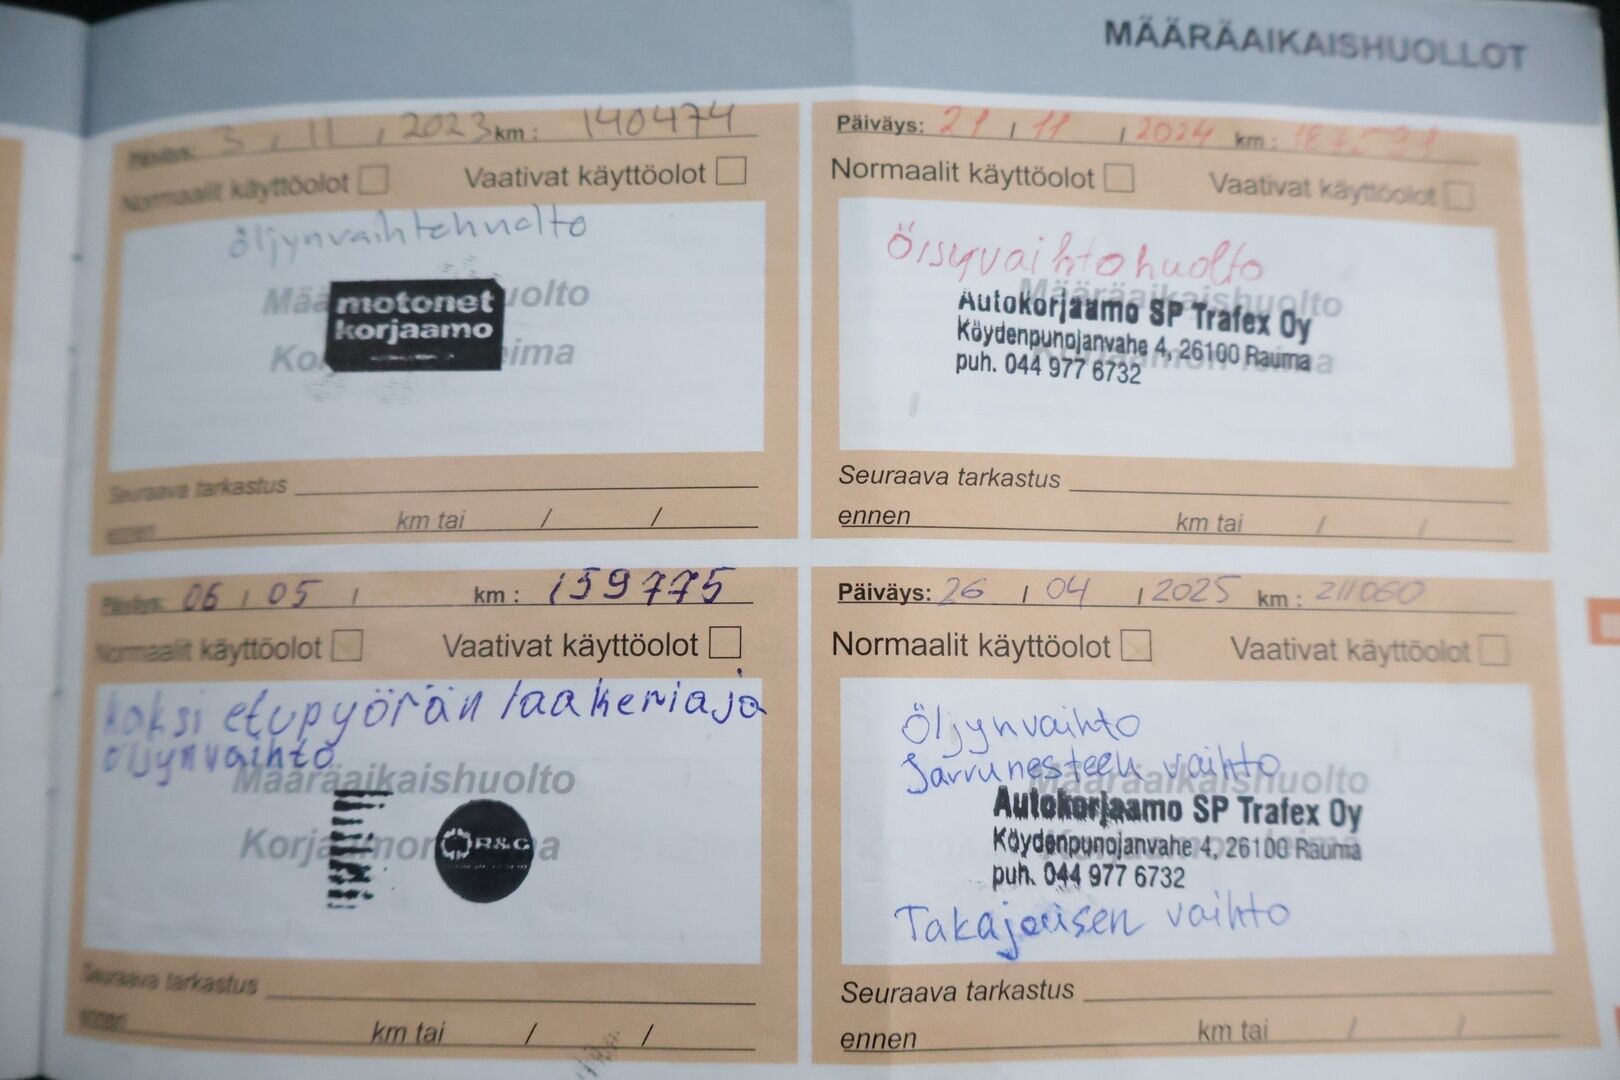 MÄÄRÄAIKAISHUOLLOT
Päiväys: 3 / 11 / 2023 km : 140474
Normaalit käyttöolot Vaativat käyttöolot
öljynvaihtehuolto
Määräaikaishuolto
motonet
korjaamo
Korjaamon leima
Seuraava tarkastus
ennen km tai / /
Päiväys: 06 / 05 / km : 159775
Normaalit käyttöolot Vaativat käyttöolot
kaksi etupyörän laakeriaja
öljynvaihto
Määräaikaishuolto
R&G
Korjaamon leima
Seuraava tarkastus
ennen km tai / /
Päiväys: 21 / 11 / 2024 km :
Normaalit käyttöolot Vaativat käyttöolot
Öısyvaihtohuolto
Määräaikaishuolto
Autokorjaamo SP Trafex Oy
Köydenpunojanvahe 4, 26100 Rauma
Korjaamon leima
puh. 044 977 6732
Seuraava tarkastus
ennen km tai / /
Päiväys: 26 / 04 / 2025 km : 211060
Normaalit käyttöolot Vaativat käyttöolot
Öljynvaihto
Jarrunesteen vaihto
Määräaikaishuolto
Autokorjaamo SP Trafex Oy
Köydenpunojanvahe 4, 26100 Rauma
Korjaamon leima
puh. 044 977 6732
Takajousen vaihto
Seuraava tarkastus
ennen km tai / /